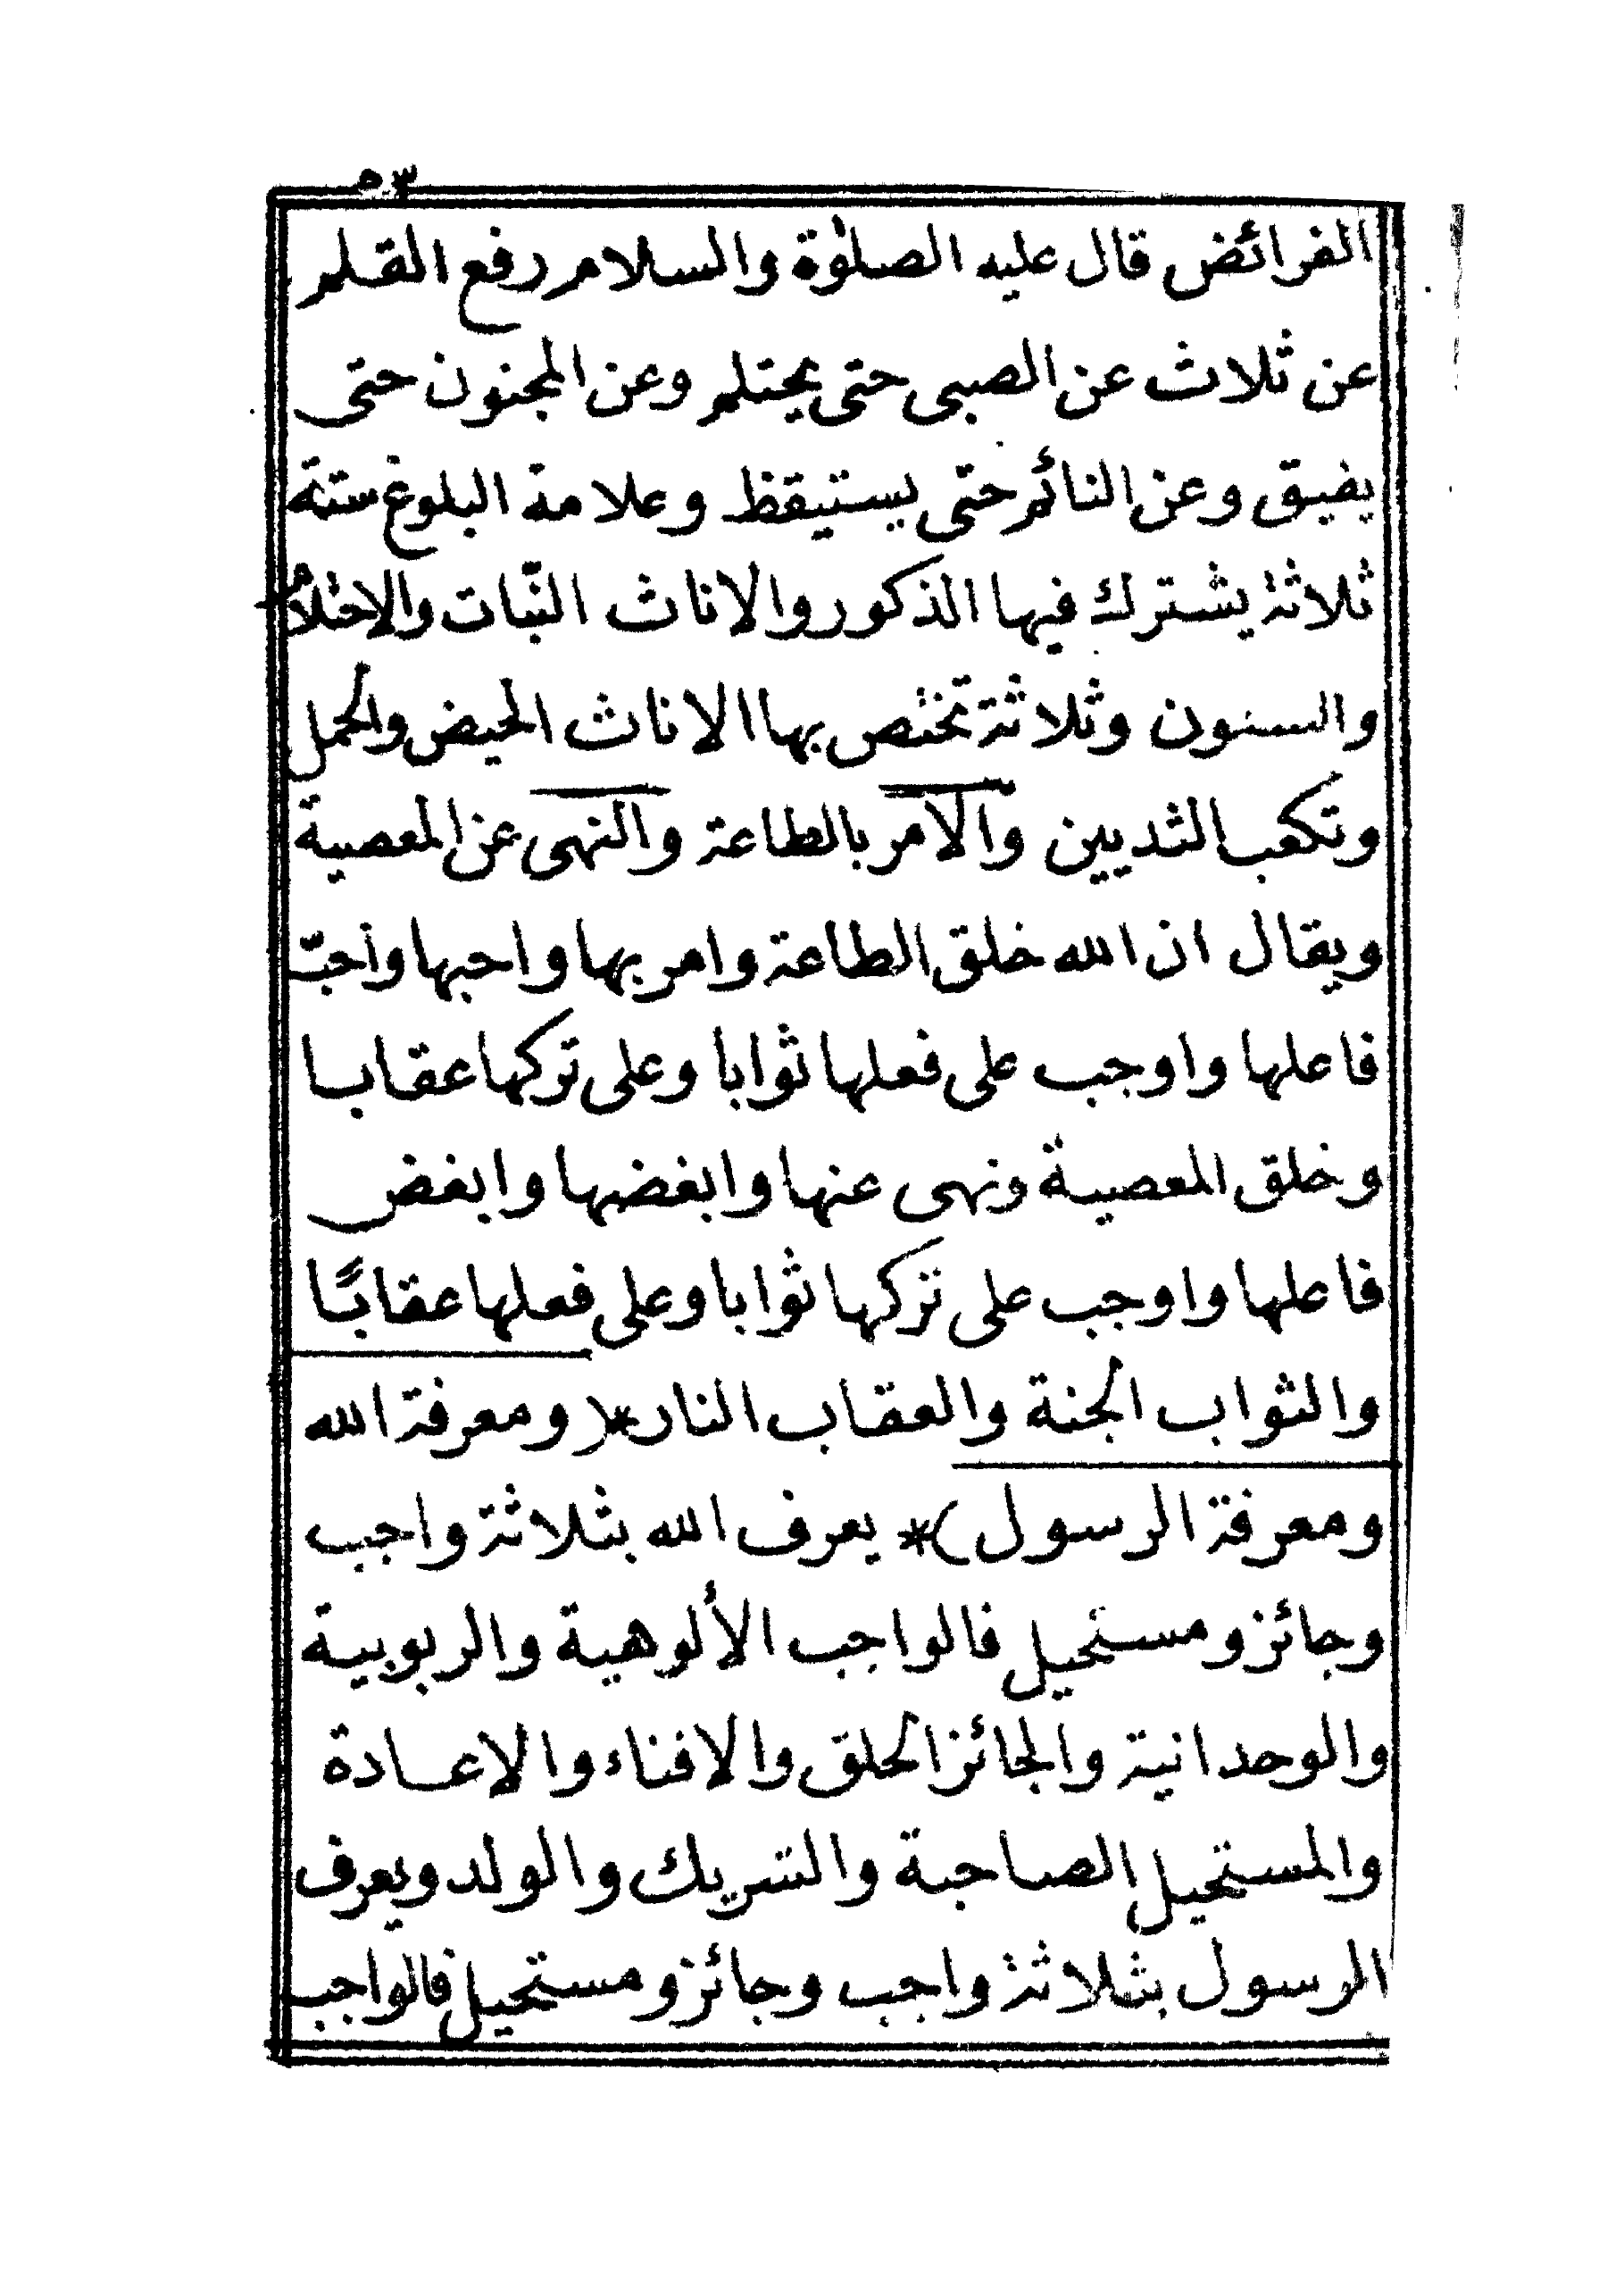 ٥٣
الفرائض قال عليه الصلوة والسلام رفع القلم
عن ثلاث عن الصبى حتى يحتلم وعن المجنون حتى
يفيق وعن النائم حتى يستيقظ وعلامة البلوغ ستة
ثلاثة يشترك فيها الذكور والاناث النّبات والاحتلام
والسنون وثلاثة تختص بها الاناث الحيض والحمل
وتكعب الثديين والامر بالطاعة والنهى عن المعصية
ويقال ان الله خلق الطاعة وامر بها واحبها واحبّ
فاعلها واوجب على فعلها ثوابا وعلى تركها عقابا
وخلق المعصية ونهى عنها وابغضها وابغض
فاعلها واوجب على تركها ثوابا وعلى فعلها عقابًا
والثواب الجنة والعقاب النار *( ومعرفة الله
ومعرفة الرسول )* يعرف الله بثلاثة واجب
وجائز ومستحيل فالواجب الألوهية والربوبية
والوحدانية والجائز الخلق والافناء والاعادة
والمستحيل الصاحبة والشريك والولد ويعرف
الرسول بثلاثة واجب وجائز ومستحيل فالواجب